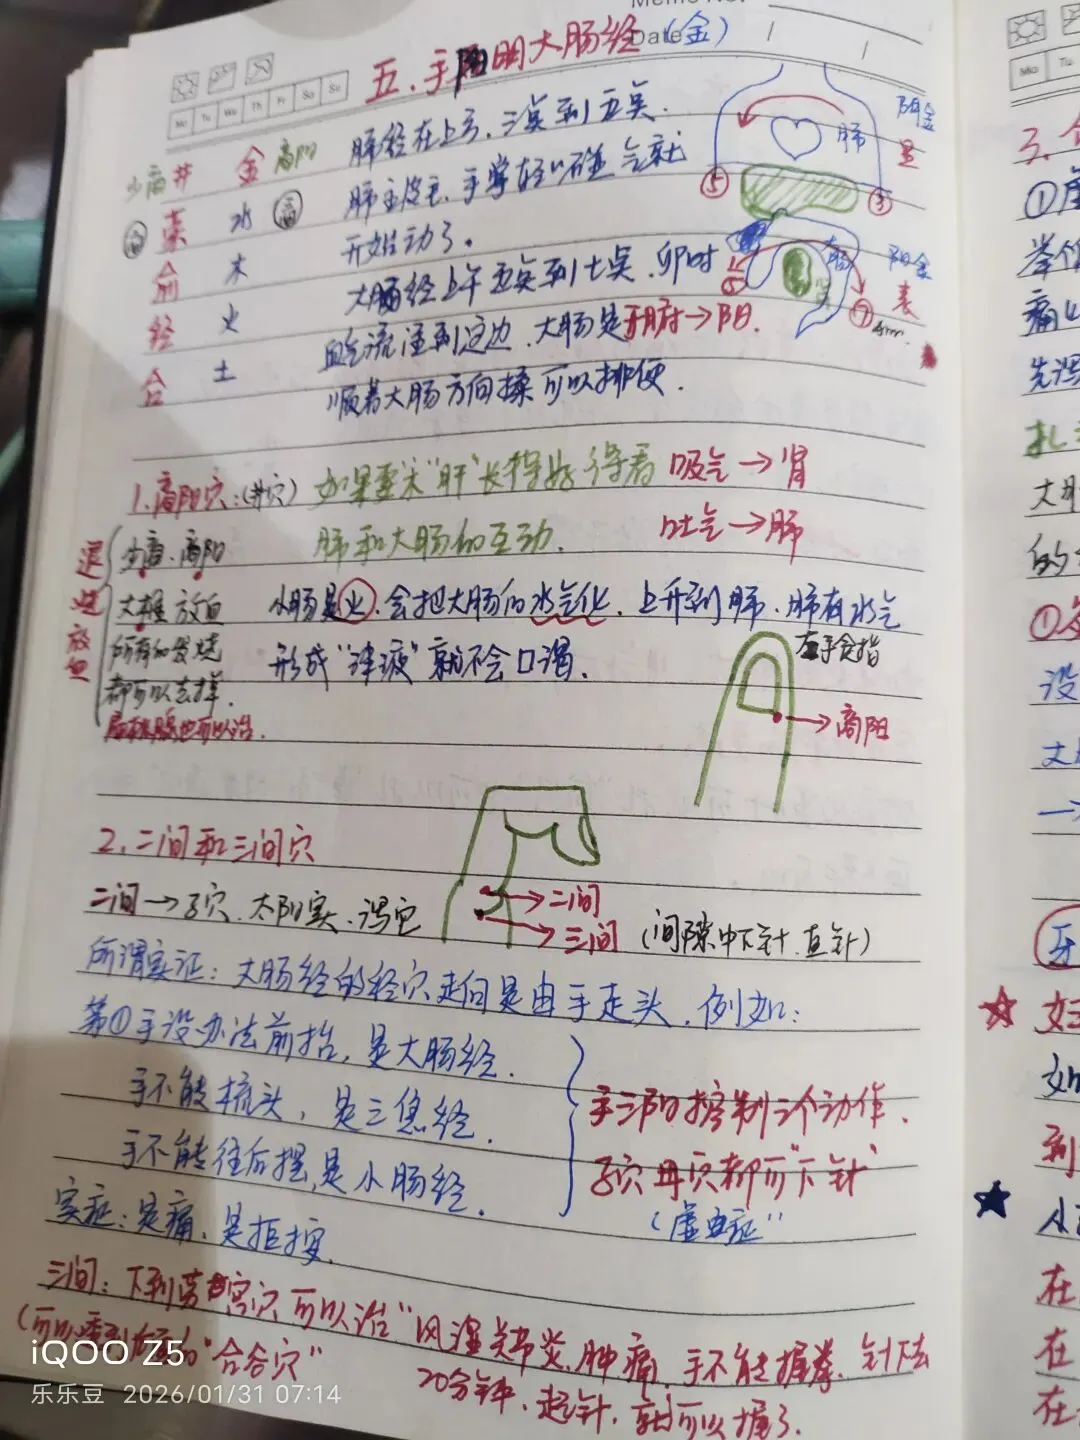 Date
五、手阳明大肠经（金）
Mo Tu We Th Fr Sa Su
少商 井 金 商阳
荥 水
俞 木
经 火
合 土
肺经在上方，三点到五点．
肺主皮毛，手掌轻轻碰 气就
开始动了。
大肠经上午五点到七点，卯时
血气流注到这边，大肠是腑→阳．
顺着大肠方向揉可以排便．
肺
阴金
里
⑤
③
阳金
表
⑤
⑦
1. 商阳穴：(井穴) 如果要求"肝"长得好 得看 吸气→肾
肺和大肠的互动． 吐气→肺
退烧放血
少商、商阳
大椎 放血
所有的发烧
都可以去掉．
小肠是火，会把大肠的水气化，上升到肺，肺有水气
形成"津液"就不会口渴．
左手食指
→商阳
2. 二间和三间穴
二间→子穴．太阳实，泻它
→二间
→三间 (间隙中下针，直针)
所谓实证：大肠经的经穴走向是由手走头，例如：
第①手没办法前抬，是大肠经．
手不能梳头，是三焦经．
手不能往后摆，是小肠经．
手三阳控制三个动作．
子穴母穴都可"下针"
实症：是痛，是拒按．
三间：下到劳宫穴 可以治"风湿关节炎，肿痛，手不能握拳，针下去
"合谷穴"
20分钟，起针，就可以握了．
iQOO Z5
乐乐豆 2026/01/31 07:14
Mo Tu
3.
①虚
举
痛
先泻
扎
大肠
的
①
没
大
一
牙
如
到
从
在
在
在